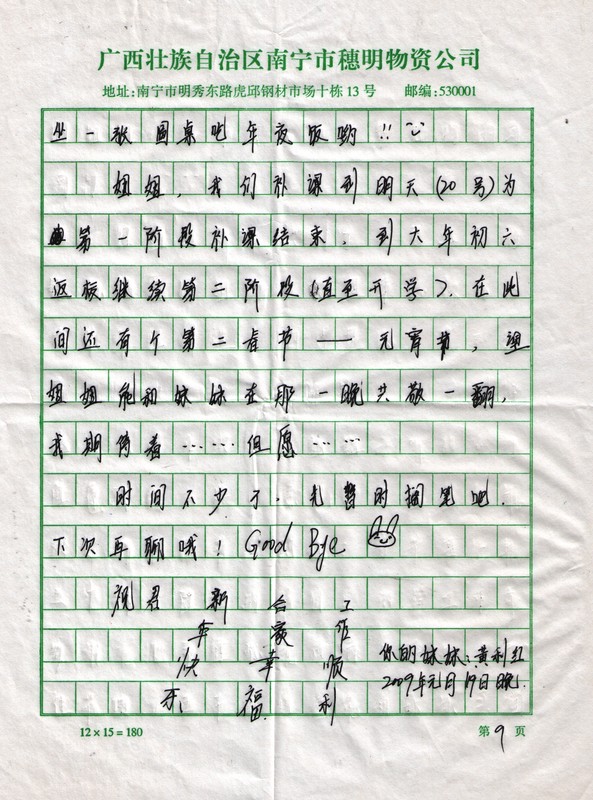 广西壮族自治区南宁市穗明物资公司
地址:南宁市明秀东路虎邱钢材市场十栋13号 邮编:530001
坐一张圆桌吃年夜饭哟!!
姐姐,我们补课到明天(20号)为
第一阶段补课结束.到大年初六
返校继续第二阶段(直至开学).在此
间还有个第二春节——元宵节,望
姐姐能和妹妹在那一晚共敬一翻,
我期待着……但愿……
时间不少了.先暂时搁笔吧.
下次再聊哦!Good Bye
祝君 新年快乐 合家幸福 工作顺利
你的妹妹:黄利红
2009年元月19日晚.
12×15=180 第9页